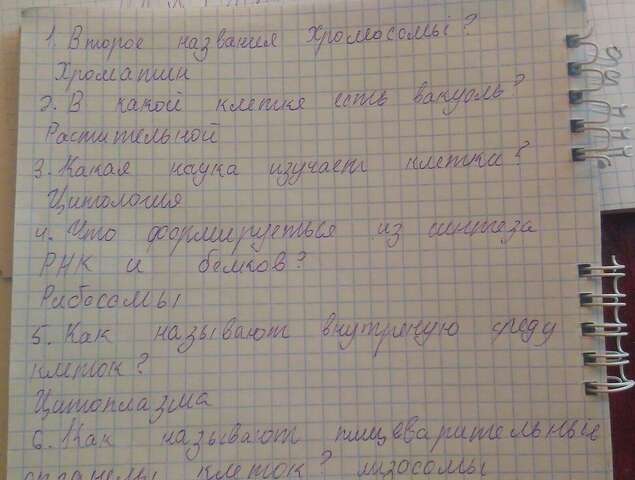 1. Второе названия Хромосомы?
Хроматин
2. В какой клетке есть вакуоль?
Растительной
3. Какая наука изучает клетки?
Цитология
4. Что формируеться из синтеза
РНК и белков?
Рибосомы
5. Как называют внутреную среду
клеток?
Цитоплазма
6. Как называют пищеварительные
органелы клеток? лизосомы